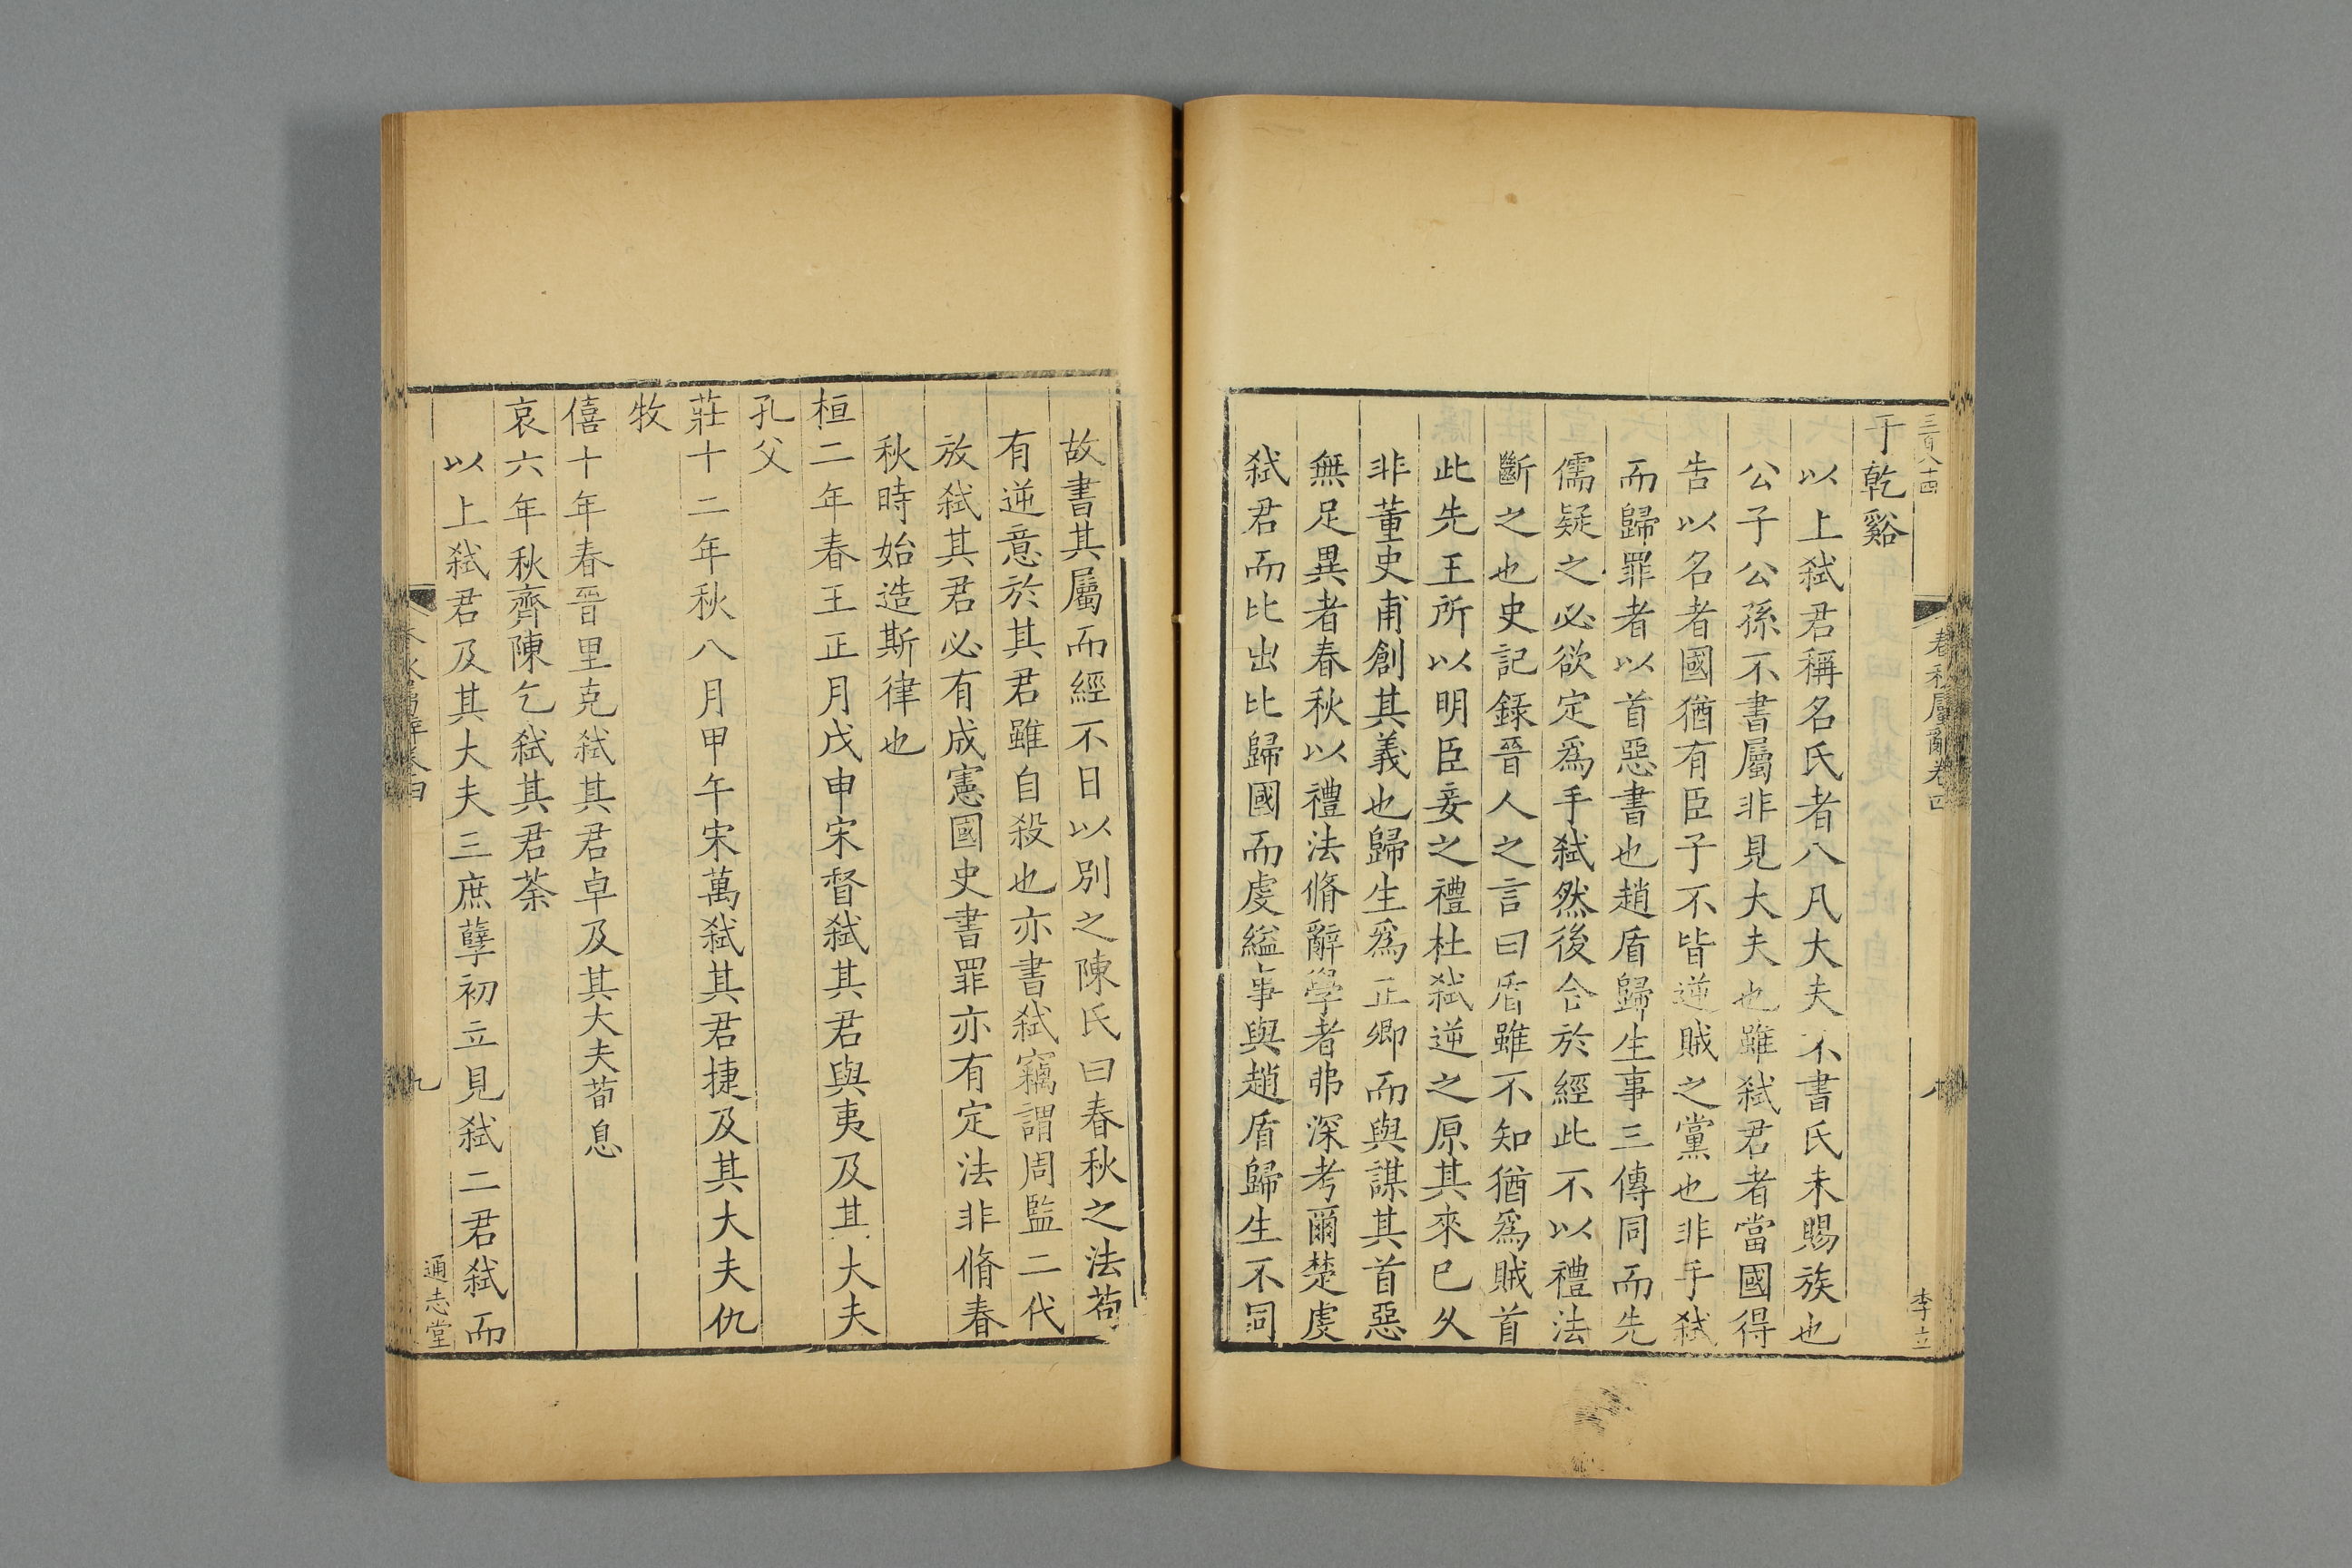 三百八十四
春秋屬辭卷四
八
李立
于乾谿
以上弑君稱名氏者八凡大夫不書氏未賜族也
公子公孫不書屬非見大夫也雖弑君者當國得
告以名者國猶有臣子不皆逆賊之黨也非手弑
而歸罪者以首惡書也趙盾歸生事三傳同而先
儒疑之必欲定爲手弑然後合於經此不以禮法
斷之也史記錄晉人之言曰盾雖不知猶爲賊首
此先王所以明臣妾之禮杜弑逆之原其來已久
非董史甫創其義也歸生爲正卿而與謀其首惡
無足異者春秋以禮法脩辭學者弗深考爾楚虔
弑君而比出比歸國而虔縊事與趙盾歸生不同
故書其屬而經不日以別之陳氏曰春秋之法苟
有逆意於其君雖自殺也亦書弑竊謂周監二代
放弑其君必有成憲國史書罪亦有定法非脩春
秋時始造斯律也
桓二年春王正月戊申宋督弑其君與夷及其大夫
孔父
莊十二年秋八月甲午宋萬弑其君捷及其大夫仇
牧
僖十年春晉里克弑其君卓及其大夫荀息
哀六年秋齊陳乞弑其君荼
以上弑君及其大夫三庶孽初立見弑二君弑而
九
通志堂